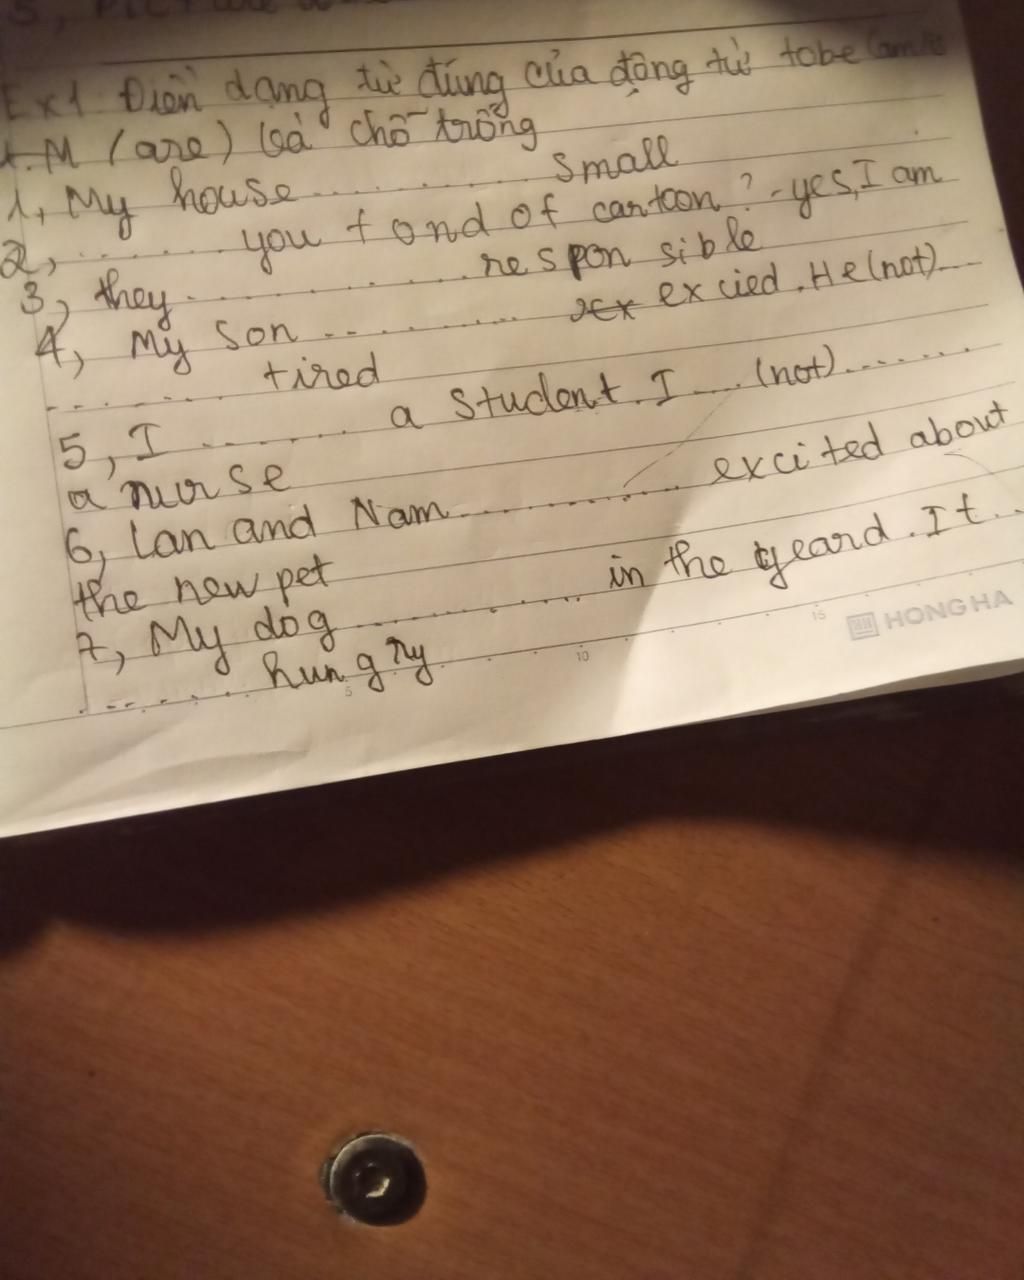 Ex1 Điền dạng từ đúng của động từ tobe
(are) chỗ trống
1, My house .......... small
2, ........ you fond of cartoon? - yes, I am
3, they .............. responsible
4, My son .......... excied. He (not)....
........ tired
5, I ........ a student. I .... (not) .......
a nurse
6, Lan and Nam ............ excited about
the new pet
7, My dog ............ in the yeard. It ...
........ hungry
5 10 15 HONG HA